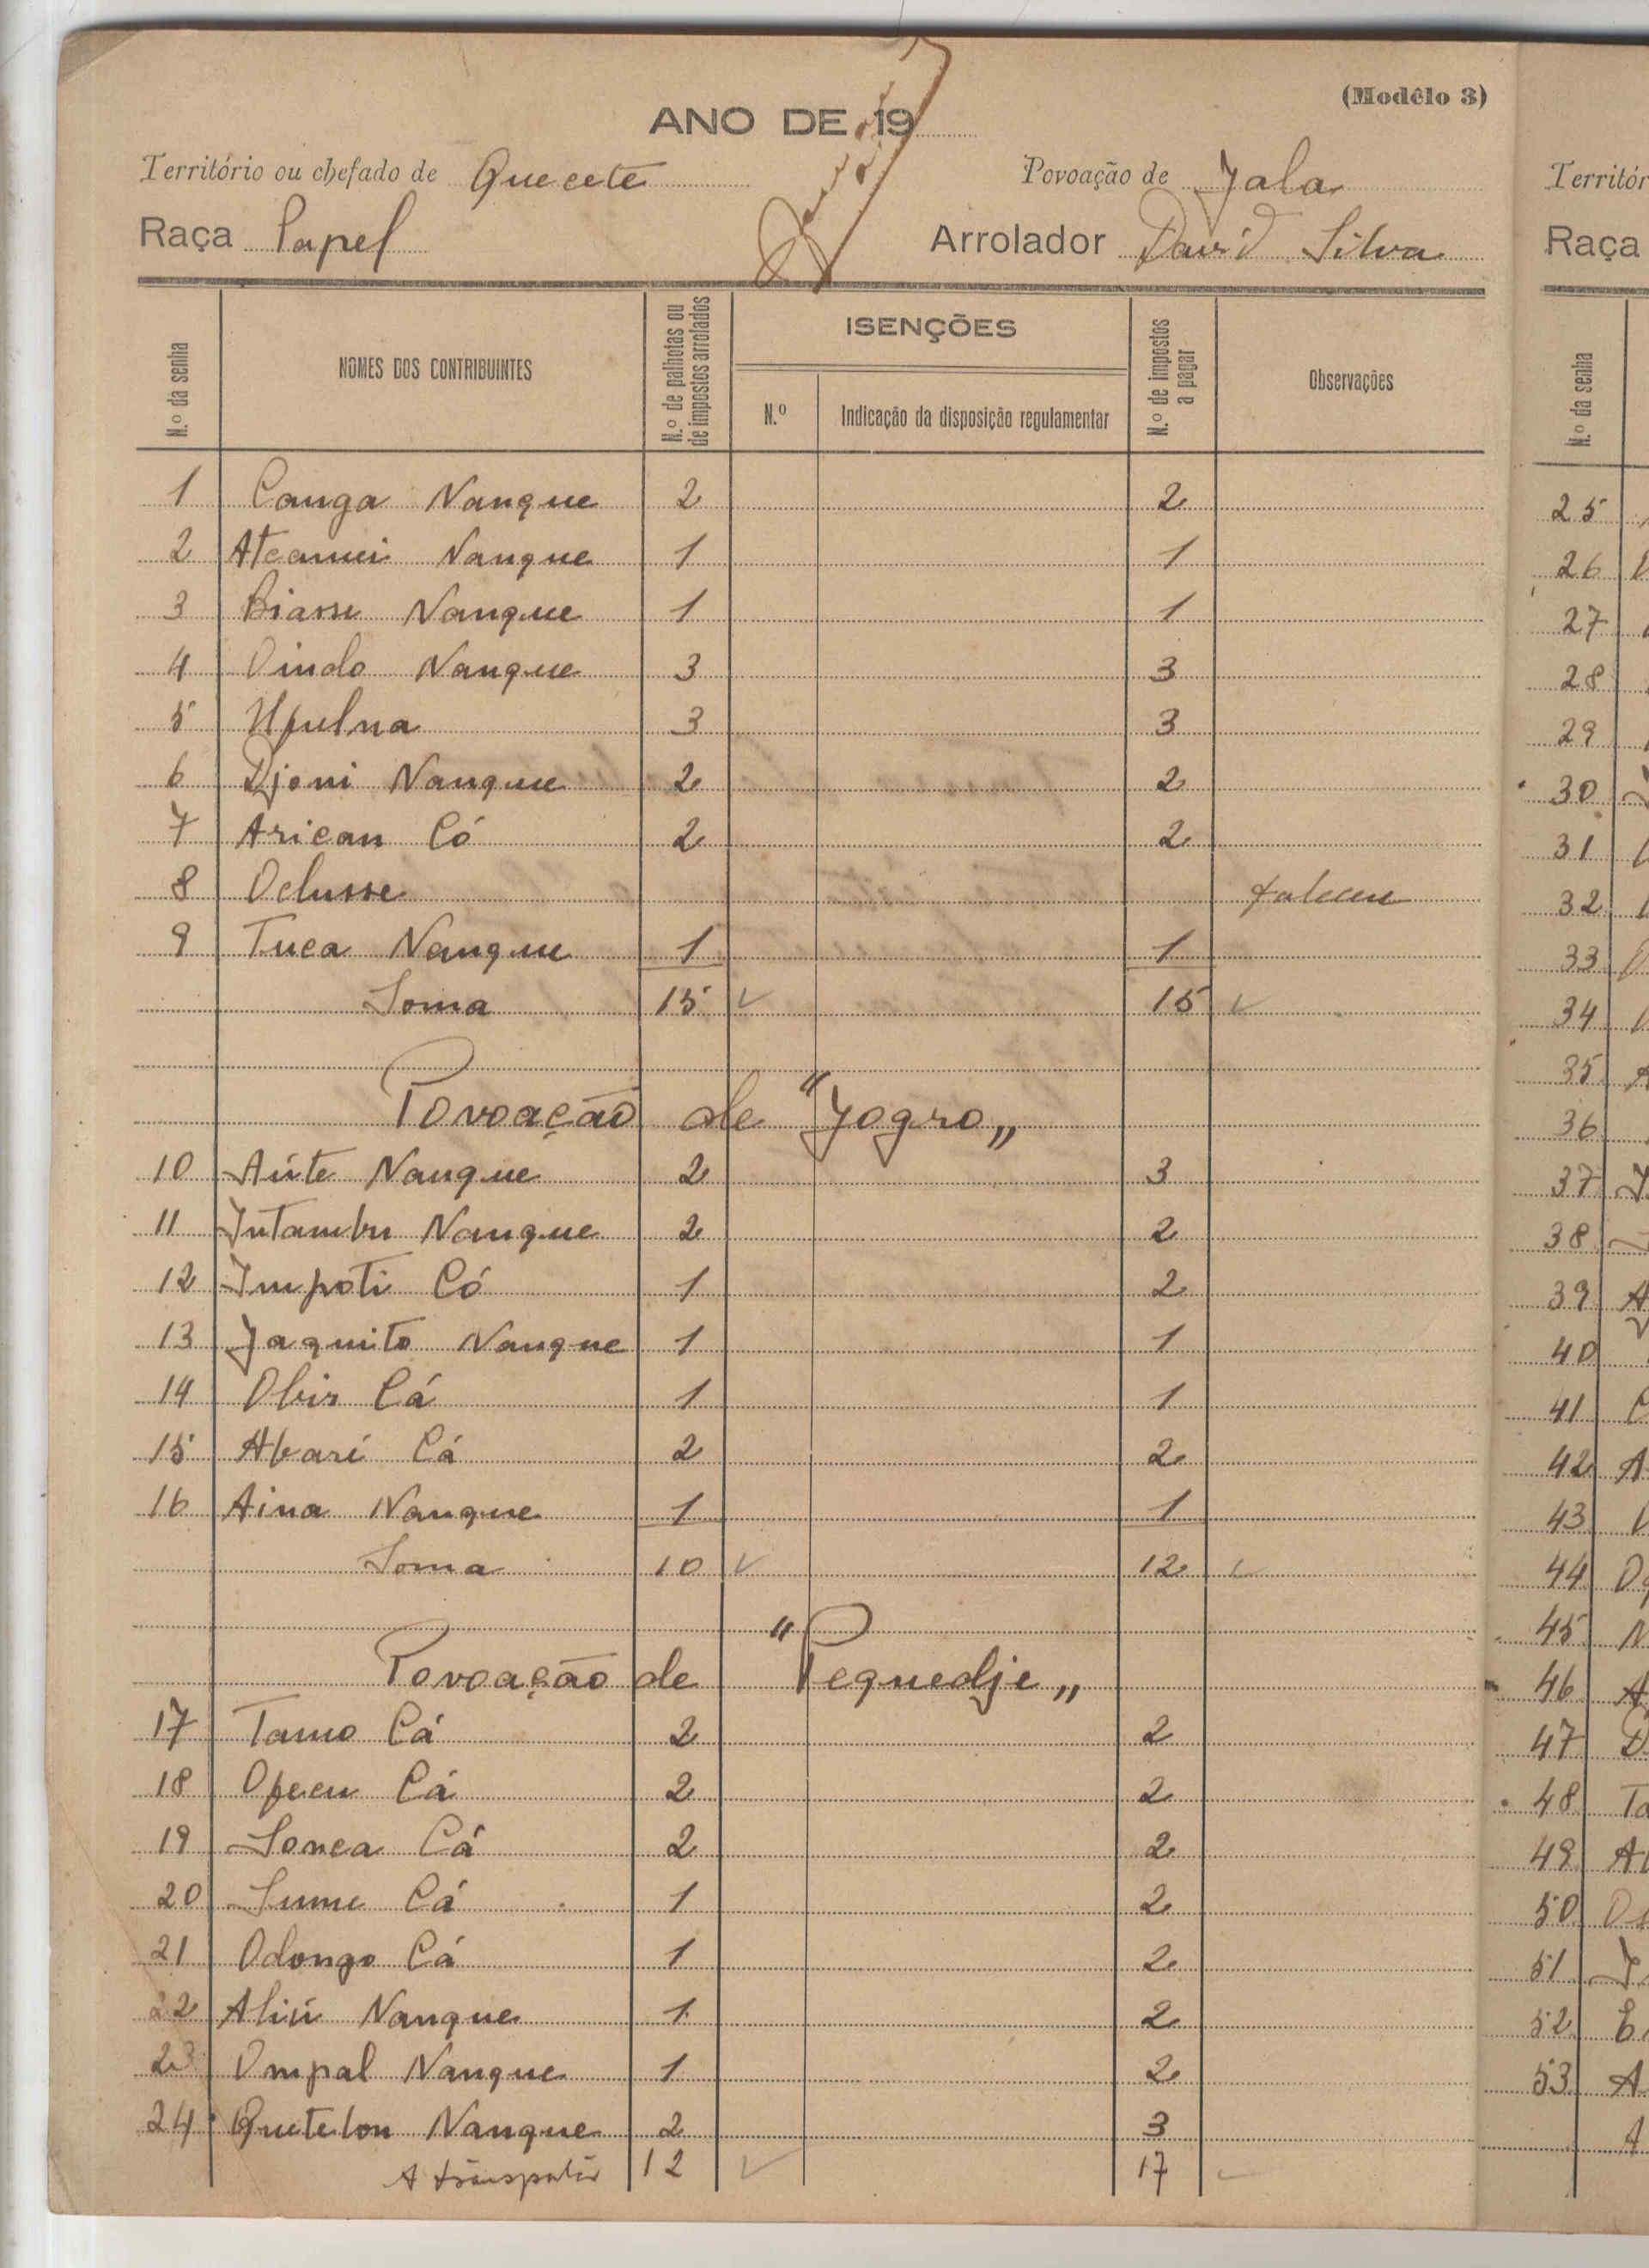 (Modêlo 3)
ANO DE 19
Território ou chefado de Quecete Povoação de Jala
Raça Papel Arrolador David Silva
N.º da senha
NOMES DOS CONTRIBUINTES
N.º de palhotas ou de impostos arrolados
ISENÇÕES
N.º
Indicação da disposição regulamentar
N.º de impostos a pagar
Observações
1 Canga Nanque 2 2
2 Nanque 1 1
3 Biasse Nanque 1 1
4 Oindo Nanque 3 3
5 Upulna 3 3
6 Djoni Nanque 2 2
7 Arican Có 2 2
8 Oclusse faleceu
9 Tuca Nanque 1 1
Soma 15 ✓ 15 ✓
Povoação de "Jogro„
10 Aúte Nanque 2 3
11 Intambu Nanque 2 2
12 Impoti Có 1 2
13 Jaquito Nanque 1 1
14 Obis Cá 1 1
15 Abari Cá 2 2
16 Aina Nanque 1 1
Soma 10 ✓ 12 ✓
Povoação de "Pequedje„
17 Tamo Cá 2 2
18 Opecu Cá 2 2
19 Sonca Cá 2 2
20 Sume Cá 1 2
21 Odongo Cá 1 2
22 Nanque 1 2
23 Ompal Nanque 1 2
24 Quetelon Nanque 2 3
A transportar 12 ✓ 17 ✓
Territór
Raça
N.º da senha
25
26
27
28
29
30
31
32
33
34
35
36
37
38
39
40
41
42
43
44
45
46
47
48
49
50
51
52
53